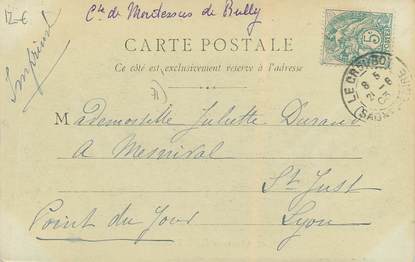 12-€
Cte de Montessus de Bully
Imprimé
CARTE POSTALE
Ce côté est exclusivement réservé à l'adresse
71)
Mademoiselle Juliette Durand
A Mesnival
St Just
Point du Jour Lyon
5
LE CREUSOT
8 5